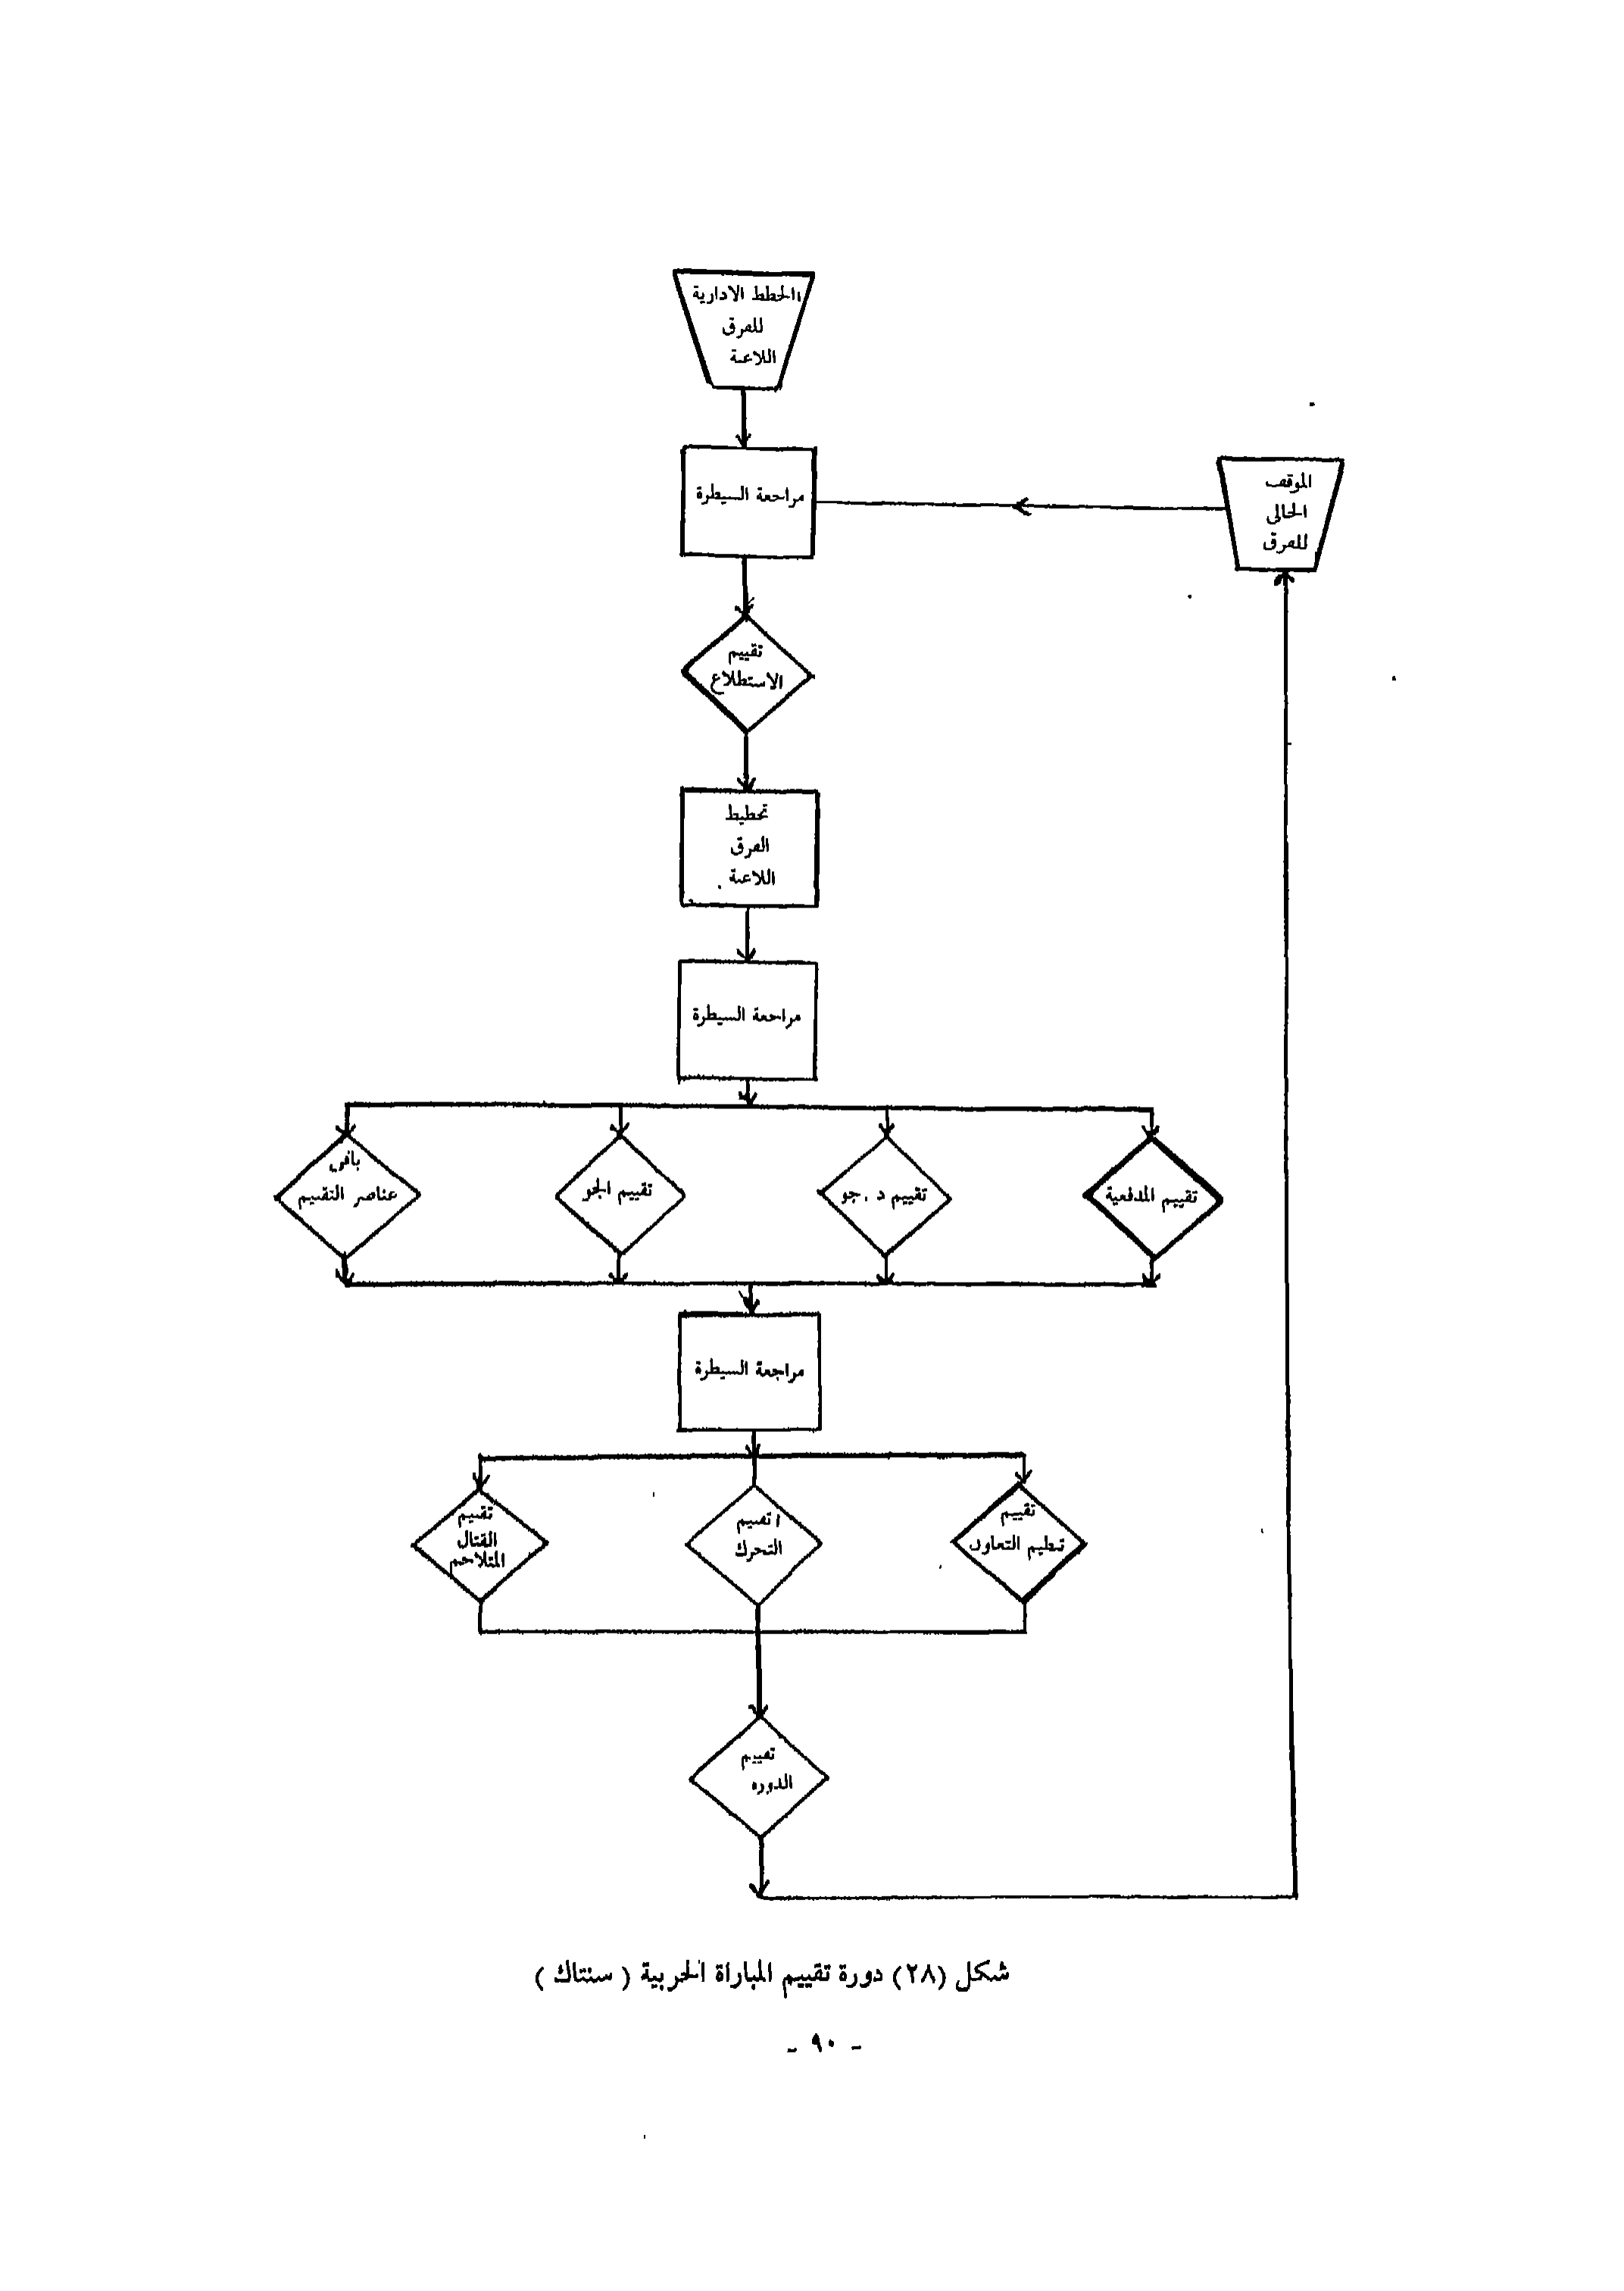 الخطط الادارية
للفرق
اللاعبة
مراجعة السيطرة
الموقف
الحالى
للفرق
تقييم
الاستطلاع
تخطيط
الفرق
اللاعبة
مراجعة السيطرة
تقييم المدفعية
تقييم د . جو
تقييم الجو
باقى
عناصر التقييم
مراجعة السيطرة
تقييم
تنظيم التعاون
تقييم
التحرك
تقييم
القتال
المتلاحم
تقييم
الدوره
شكل (٢٨) دورة تقييم المباراة الحربية ( سنتاك )
- ٩٠ -